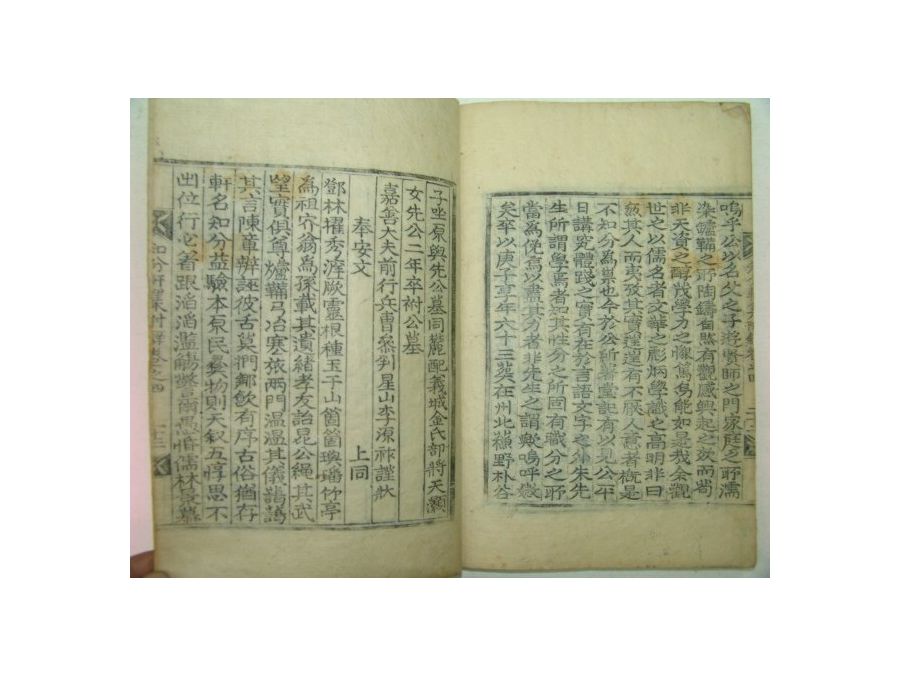 嗚乎公以名父之子遊賢師之門家庭之所濡
染鑪鞴之所陶鑄固然有觀感興起之效而苟
非天資之醇茂學力之慥篤烏能如是哉余觀
世之以儒名者文華之彪炳學識之高明非曰
無其人而夷攷其實遑遑有不厭人意者槪是
不知分為祟也今於公所著堂記有以見公平
日講究體踐之實有在於言語文字之外朱先
生所謂學焉者知其性分之所固有職分之所
當為俛焉以盡其力者非先生之謂歟嗚呼㪟
矣卒以庚子享年六十三葬在州北蘓野朴谷
子坐原與先公墓同麓配義城金氏部將天灝
女先公二年卒祔公墓
嘉善大夫前行兵曹叅判星山李源祚謹狀
奉安文 上同
鄧林擢秀滓厥靈根種玉于山箇箇璵璠竹亭
為祖穴翁為孫載其遺緒孝友詒昆公繩其武
望實俱尊爐鞴弓冶寒旅兩門溫溫其儀謁謁
其言陳葦辨誣彼舌莫捫鄕飲有序古俗猶存
軒名知分益驗本原民彛物則天叙五惇思不
出位行它著跟滔滔濫觴營營爲惛儒林景慕